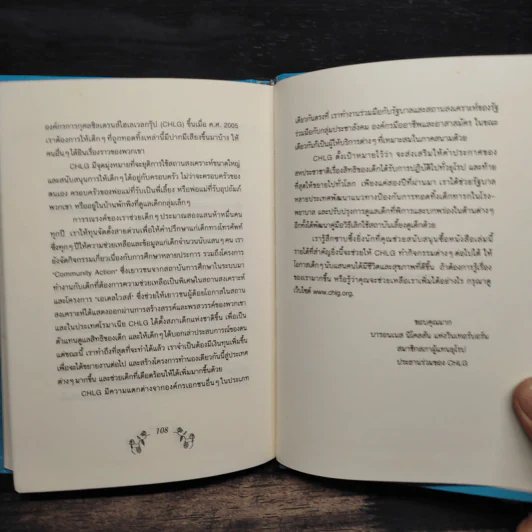 องค์กรการกุศลชิลเดรนส์ไฮเลเวลกรุ๊ป (CHLG) ขึ้นเมื่อ ค.ศ. 2005
เราต้องการให้เด็กๆ ที่ถูกทอดทิ้งเหล่านี้มีปากมีเสียงขึ้นมาบ้าง ให้
คนอื่นๆ ได้ยินเรื่องราวของพวกเขา
CHLG มีจุดมุ่งหมายที่จะยุติการใช้สถานสงเคราะห์ขนาดใหญ่
และสนับสนุนการให้เด็กๆ ได้อยู่กับครอบครัว ไม่ว่าจะครอบครัวของ
ตนเอง ครอบครัวของพ่อแม่ที่รับเป็นพี่เลี้ยง หรือพ่อแม่ที่รับอุปถัมภ์
พวกเขา หรืออยู่ในบ้านพักพิงที่ดูแลเด็กกลุ่มเล็กๆ
การรณรงค์ของเราช่วยเด็กๆ ประมาณสองแสนห้าหมื่นคน
ทุกปี เราให้ทุนจัดตั้งสายด่วนเพื่อให้คำปรึกษาแก่เด็กทางโทรศัพท์
ซึ่งทุกๆ ปีให้ความช่วยเหลือและข้อมูลแก่เด็กจำนวนนับแสนๆ คน เรา
ยังจัดกิจกรรมเกี่ยวเนื่องกับการศึกษาหลายประการ รวมถึงโครงการ
'Community Action' ซึ่งเยาวชนจากสถาบันการศึกษาในระบบมา
ทำงานกับเด็กที่ต้องการความช่วยเหลือเป็นพิเศษในสถานสงเคราะห์
และโครงการ 'เอเดลไวสส์' ซึ่งช่วยให้เยาวชนผู้ด้อยโอกาสในสถาน
สงเคราะห์ได้แสดงออกผ่านการสร้างสรรค์และพรสวรรค์ของพวกเขา
และในประเทศโรมาเนีย CHLG ได้ตั้งสภาเด็กแห่งชาติขึ้น เพื่อเป็น
ตัวแทนดูแลสิทธิของเด็ก และให้เด็กๆ ได้บอกเล่าประสบการณ์ของตน
แต่ขณะนี้ เราทำถึงที่สุดที่จะทำได้แล้ว เราจำเป็นต้องมีเงินทุนเพิ่มขึ้น
เพื่อจะได้ขยายงานต่อไป และสร้างโครงการทำนองเดียวกันนี้สู่ประเทศ
ต่างๆ มากขึ้น และช่วยเด็กที่เดือดร้อนให้ได้เพิ่มมากขึ้นด้วย
CHLG มีความแตกต่างจากองค์กรเอกชนอื่นๆ ในประเภท
108
เดียวกันตรงที่ เราทำงานร่วมมือกับรัฐบาลและสถานสงเคราะห์ของรัฐ
ร่วมมือกับกลุ่มประชาสังคม องค์กรมืออาชีพและอาสาสมัคร ในขณะ
เดียวกันก็เป็นผู้ให้บริการต่างๆ ที่เหมาะสมในภาคสนามด้วย
CHLG ตั้งเป้าหมายไว้ว่า จะส่งเสริมให้คำประกาศของ
สหประชาชาติเรื่องสิทธิของเด็กได้รับการปฏิบัติไปทั่วยุโรป และท้าย
ที่สุดให้ขยายไปทั่วโลก เพียงแค่สองปีที่ผ่านมา เราได้ช่วยรัฐบาล
หลายประเทศพัฒนาแนวทางป้องกันการทอดทิ้งเด็กทารกในโรง-
พยาบาล และปรับปรุงการดูแลเด็กที่พิการและบกพร่องในด้านต่างๆ
อีกทั้งได้พัฒนาคู่มือวิธีเลิกใช้สถาบันเลี้ยงดูเด็กด้วย
เรารู้สึกซาบซึ้งยิ่งนักที่คุณช่วยสนับสนุนซื้อหนังสือเล่มนี้
รายได้ที่สำคัญยิ่งนี้จะช่วยให้ CHLG ทำกิจกรรมต่างๆ ต่อไปได้ ให้
โอกาสเด็กๆ นับแสนคนได้มีชีวิตและสุขภาพที่ดีขึ้น ถ้าต้องการรู้เรื่อง
ของเรามากขึ้น หรือรู้ว่าคุณจะช่วยเหลือเราเพิ่มได้อย่างไร กรุณาดู
เว็บไซต์ www.chlg.org.
ขอบคุณมาก
บารอนเนส นิโคลสัน แห่งวินเทอร์บอร์น
สมาชิกสภาผู้แทนยุโรป
ประธานร่วมของ CHLG